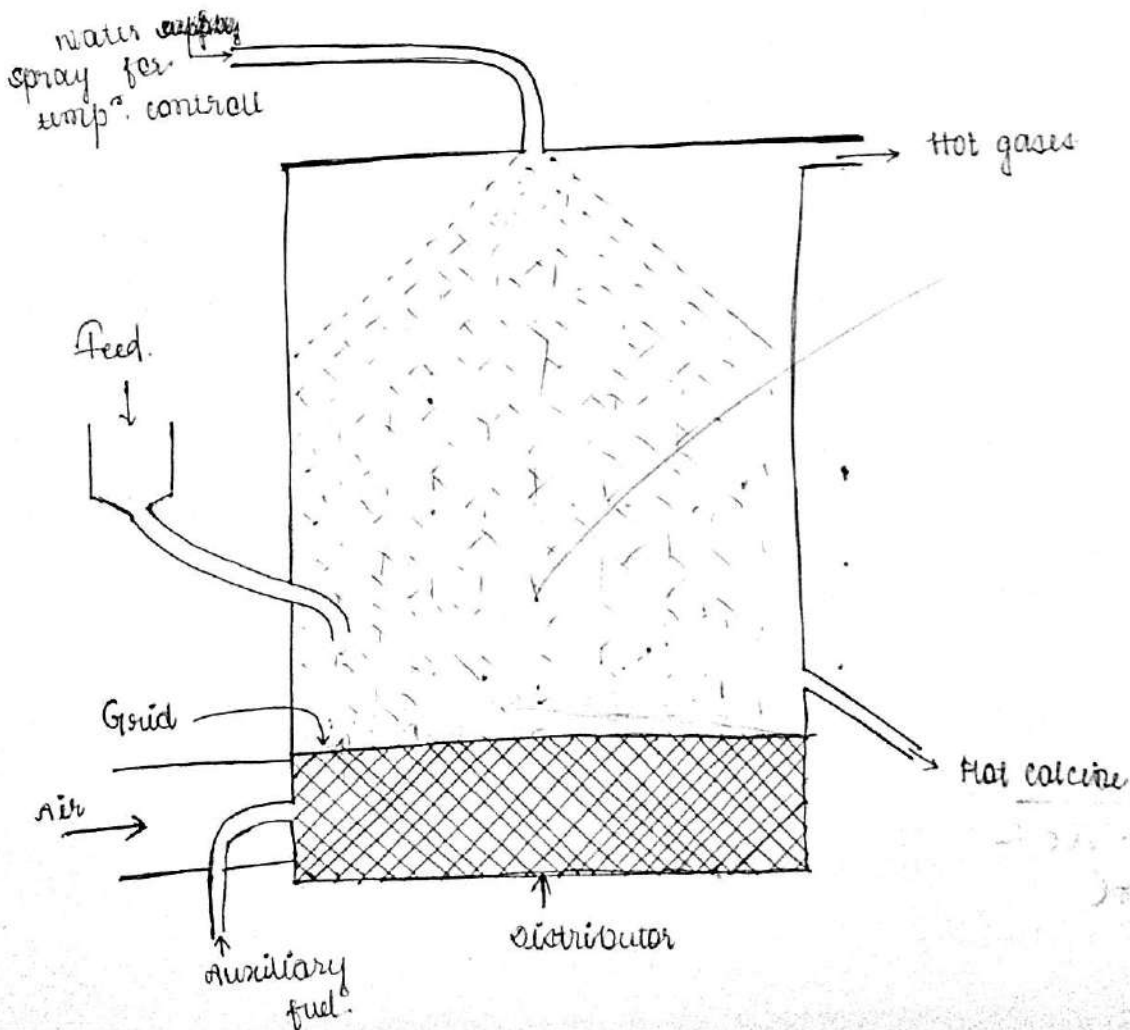 Water
spray for
temp^n. controll
Hot gases
Feed.
Grid
Air
Hot calcine
Distributor
Auxiliary
fuel.